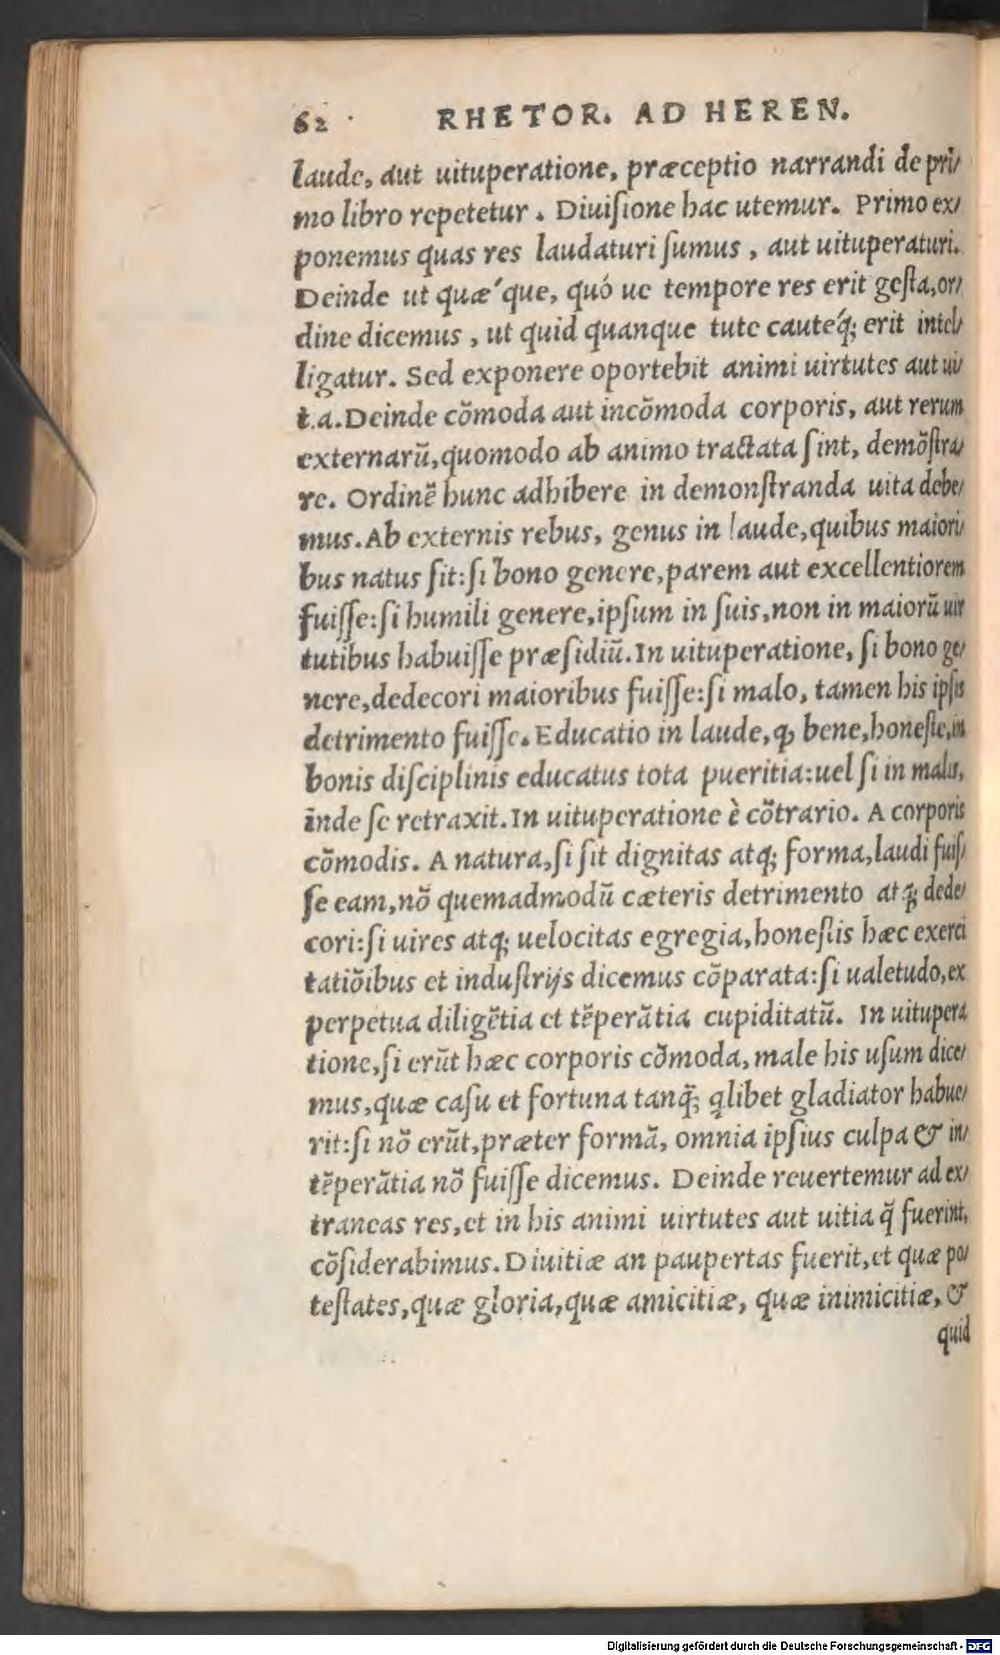 62 · RHETOR. AD HEREN.
laude, aut uituperatione, præceptio narrandi de pri/
mo libro repetetur. Diuiſione hac utemur. Primo ex/
ponemus quas res laudaturi ſumus, aut uituperaturi.
Deinde ut quæ´que, quó ue tempore res erit geſta, or/
dine dicemus, ut quid quanque tute cauteq́; erit intel/
ligatur. Sed exponere oportebit animi uirtutes aut ui/
t.a. Deinde cõmoda aut incõmoda corporis, aut rerum
externarũ, quomodo ab animo tractata ſint, demõſtra/
re. Ordinẽ hunc adhibere in demonſtranda uita debe/
mus. Ab externis rebus, genus in laude, quibus maiori/
bus natus ſit: ſi bono genere, parem aut excellentiorem
fuiſſe: ſi humili genere, ipſum in ſuis, non in maiorũ uir
tutibus habuiſſe præſidiũ. In uituperatione, ſi bono ge/
nere, dedecori maioribus fuiſſe: ſi malo, tamen his ipſis
detrimento fuiſſe. Educatio in laude, ꝙ bene, honeſte, in
bonis diſciplinis educatus tota pueritia: uel ſi in malis,
inde ſe retraxit. In uituperatione è cõtrario. A corporis
cõmodis. A natura, ſi ſit dignitas atq; forma, laudi fuiſ/
ſe eam, nõ quemadmodũ cæteris detrimento atq; dede/
cori: ſi uires atq; uelocitas egregia, honeſtis hæc exerci
tatiõibus et induſtrijs dicemus cõparata: ſi ualetudo, ex
perpetua diligẽtia et tẽperãtia cupiditatũ. In uitupera
tione, ſi erũt hæc corporis cõmoda, male his uſum dice/
mus, quæ caſu et fortuna tanq̃; qlibet gladiator habue/
rit: ſi nõ erũt, præter formã, omnia ipſius culpa & in/
tẽperãtia nõ fuiſſe dicemus. Deinde reuertemur ad ex/
traneas res, et in his animi uirtutes aut uitia q̃ fuerint,
cõſiderabimus. Diuitiæ an paupertas fuerit, et quæ po/
teſtates, quæ gloria, quæ amicitiæ, quæ inimicitiæ, &
quid
Digitalisierung gefördert durch die Deutsche Forschungsgemeinschaft - DFG